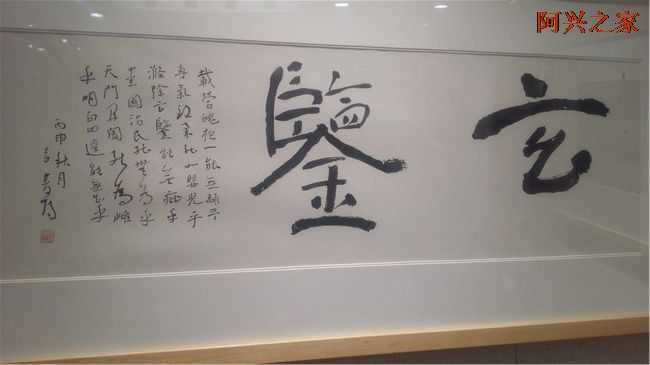 阿兴之家
玄鑒
載營魄抱一能無離乎
專氣致柔能如嬰兒乎
滌除玄鑒能無疵乎
愛國治民能無為乎
天門開闔能為雌
乎明白四達能無知乎
丙申秋月